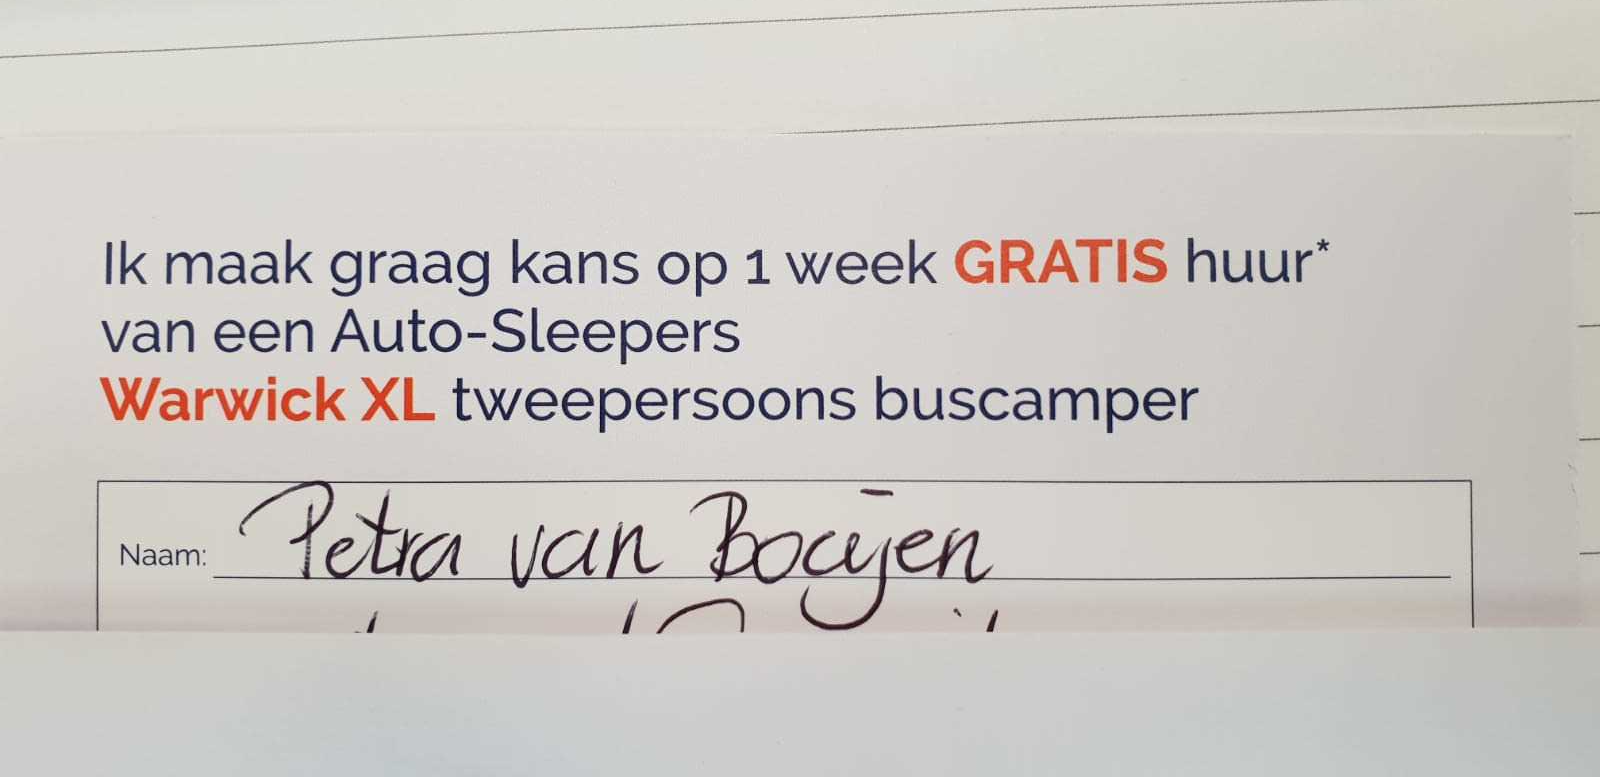 Ik maak graag kans op 1 week GRATIS huur*
van een Auto-Sleepers
Warwick XL tweepersoons buscamper
Naam: Petra van Booijen